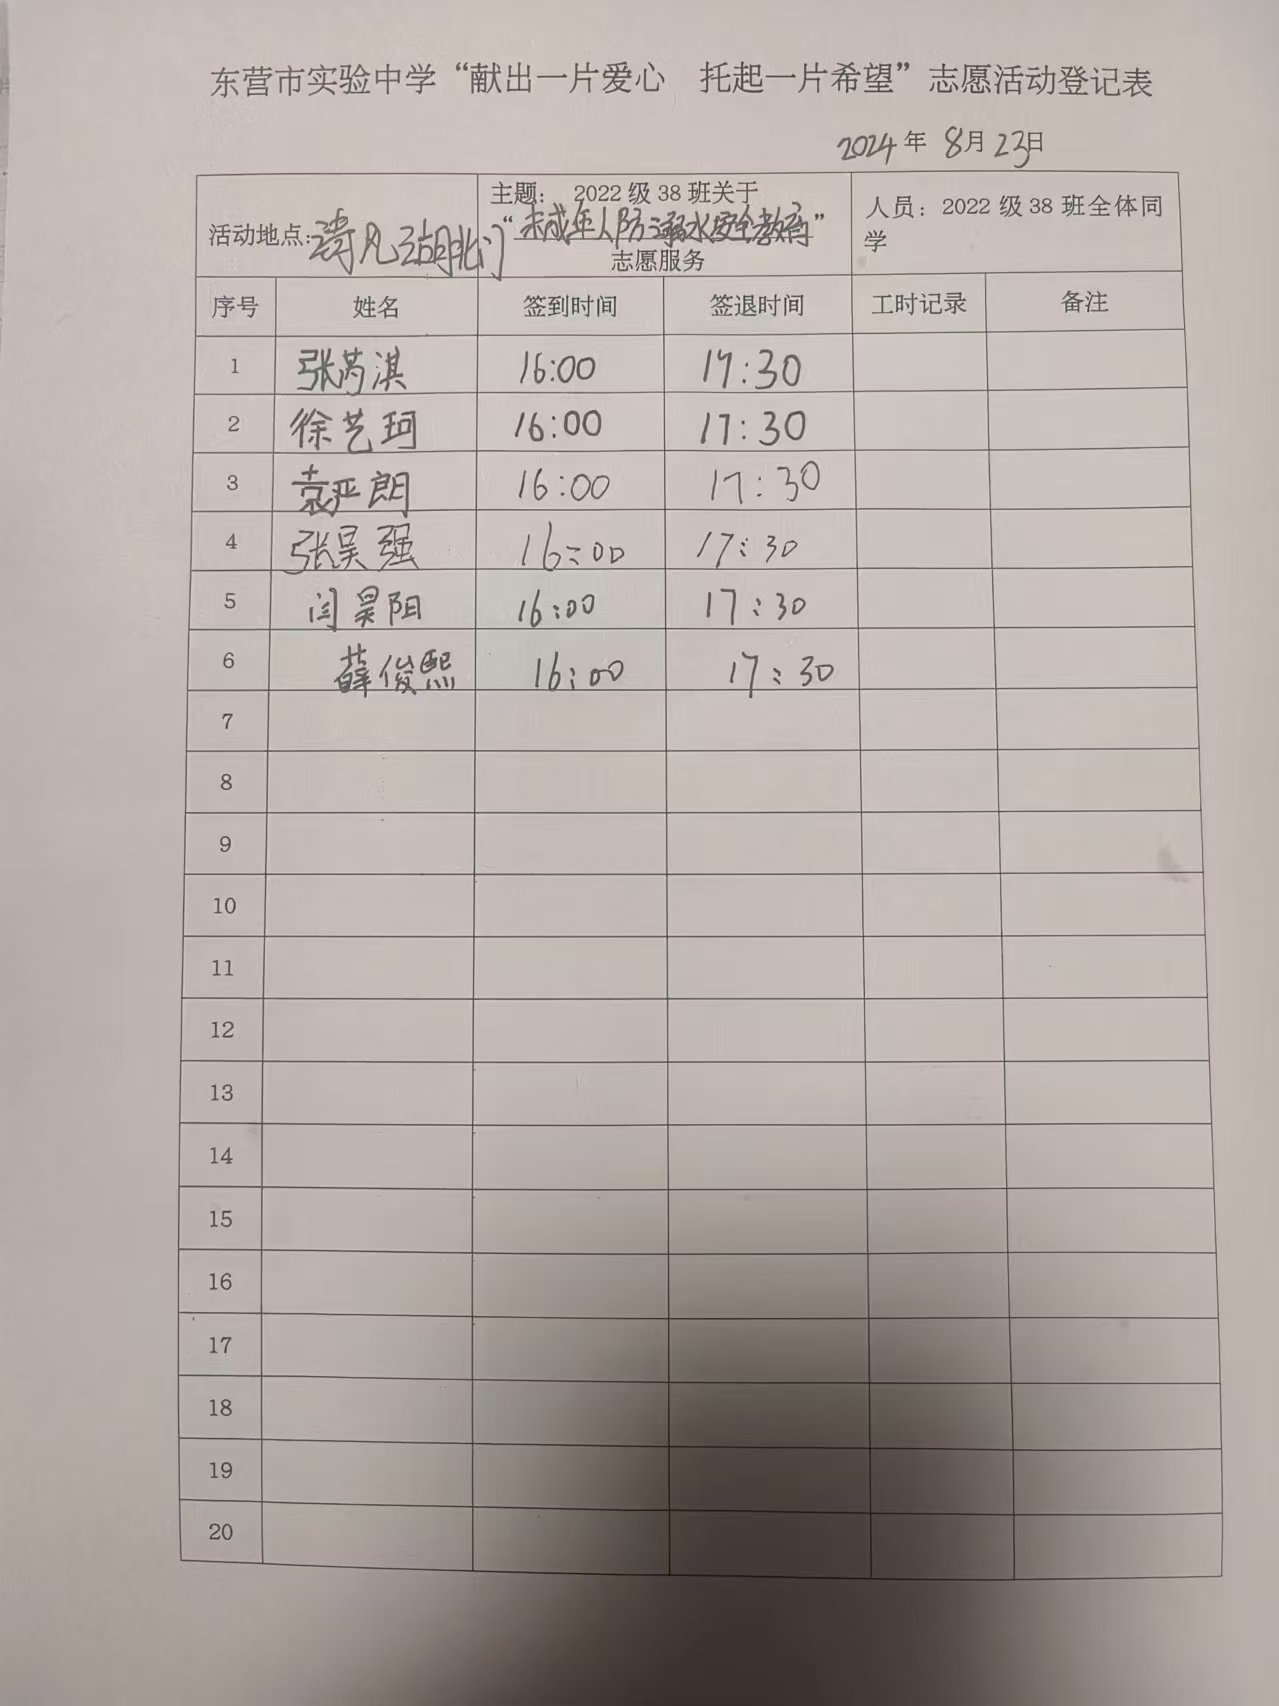 东营市实验中学“献出一片爱心 托起一片希望”志愿活动登记表
2024年 8月23日
活动地点:清风湖北门
主题: 2022级38班关于
“未成年人防溺水安全教育”
志愿服务
人员: 2022级38班全体同
学
序号 姓名 签到时间 签退时间 工时记录 备注
1 张芮淇 16:00 17:30
2 徐艺珂 16:00 17:30
3 袁严朗 16:00 17:30
4 张昊强 16:00 17:30
5 闫昊阳 16:00 17:30
6 薛俊熙 16:00 17:30
7
8
9
10
11
12
13
14
15
16
17
18
19
20